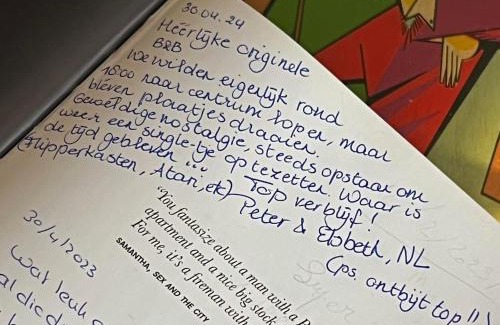 30.04.24
Heerlijke originele
B&B
We wilden eigenlijk rond
1600 naar centrum lopen, maar
bleven plaatjes draaien.
Geweldige nostalgie, steeds opstaan om
weer een single-tje op te zetten. Waar is
de tijd gebleven ... Top verblijf!
(Flipperkasten, Atari, etc) Peter & Elsbeth, NL
(ps. ontbijt top!!)
"You fantasize about a man with a P
apartment and a nice big stock
For me, it's a fireman with
SAMANTHA, SEX AND THE CITY
30/4/2023
Wat leuk
al die d